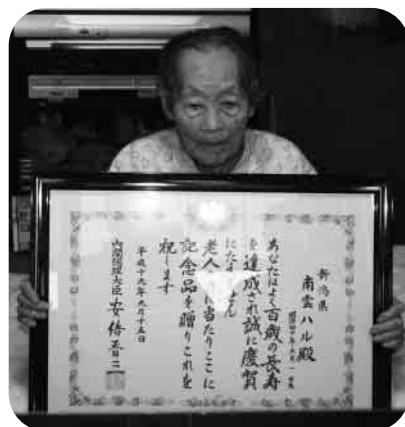 新潟県
南雲ハル殿
あなたはよく百歳の長寿
を達成され誠に慶賀
にたえません
老人の日に当たりここに
記念品を贈りこれを
祝します
平成十九年九月十五日
内閣総理大臣 安倍晋三